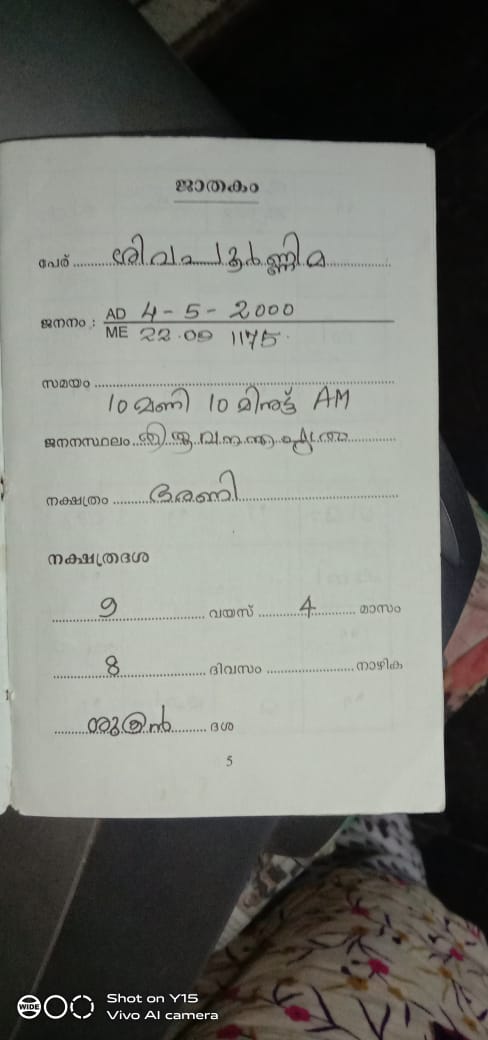 ജാതകം
പേര് ശിവപൂർണ്ണിമ
ജനനം : AD 4 - 5 - 2000
ME 22.09 1175.
സമയം
10 മണി 10 മിനുട്ട് AM
ജനനസ്ഥലം തിരുവനന്തപുരം
നക്ഷത്രം ഭരണി
നക്ഷത്രദശ
9 വയസ് 4 മാസം
8 ദിവസം നാഴിക
ശുക്രൻ ദശ
5
WIDE Shot on Y15
Vivo AI camera